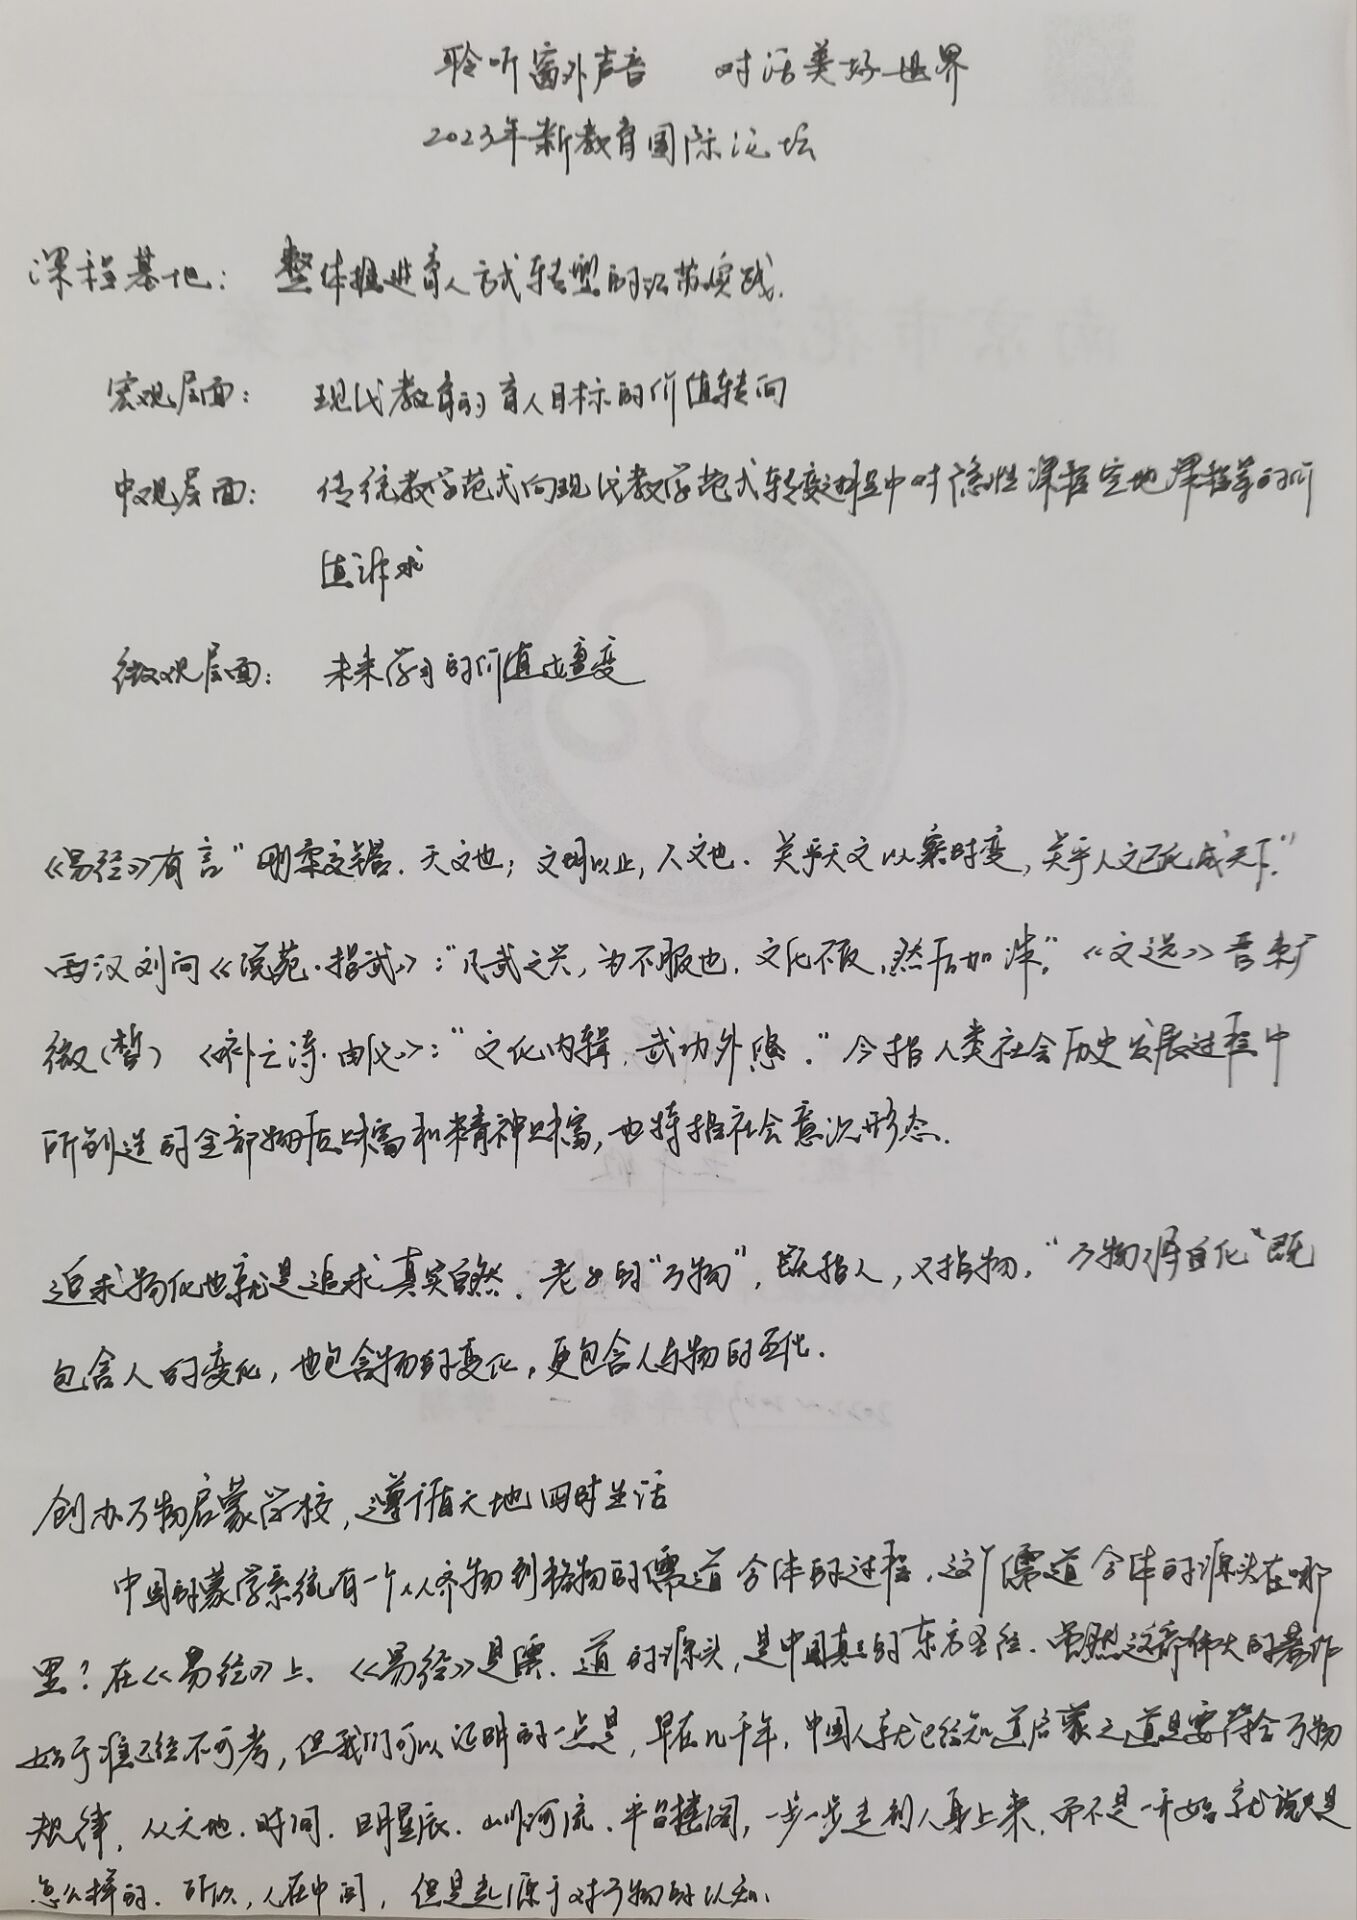 聆听窗外声音 对话美好世界
2023年新教育国际论坛
课程基地：整体推进育人方式转型的江苏实践.
宏观层面：现代教育的育人目标的价值转向
中观层面：传统教学范式向现代教学范式转变过程中对隐性课程空地课程等的价
值诉求
微观层面：未来学习的价值嬗变
《易经》有言“刚柔交错.天文也；文明以止,人文也.关乎天文以察时变,关乎人文已化成天下.”
西汉刘向《说苑·指武》：“凡武之兴,为不服也.文化不改,然后加诛.”《文选》晋束广
微（皙）《补亡诗·由仪》：“文化内辑,武功外悠.”今指人类社会历史发展过程中
所创造的全部物质财富和精神财富,也特指社会意识形态.
追求物化也就是追求真实自然.老子的“万物”,既指人,又指物,“万物得自化”既
包含人的变化,也包含物的变化,更包含人与物的互化.
创办万物启蒙学校,遵循天地四时生活
中国的蒙学系统有一个从齐物到格物的儒道合体的过程.这个儒道合体的源头在哪
里?在《易经》上.《易经》是儒.道的源头,是中国真正的东方圣经.虽然这部伟大的著作
始于谁已经不可考,但我们可以证明的一点是,早在几千年,中国人就已经知道启蒙之道是要符合万物
规律.从天地.时间.日月星辰.山川河流.平台楼阁,一步一步走到人身上来.而不是一开始就说人是
怎么样的.所以,人在中间,但是起源于对万物的认知.
南京市花港第一小学教案